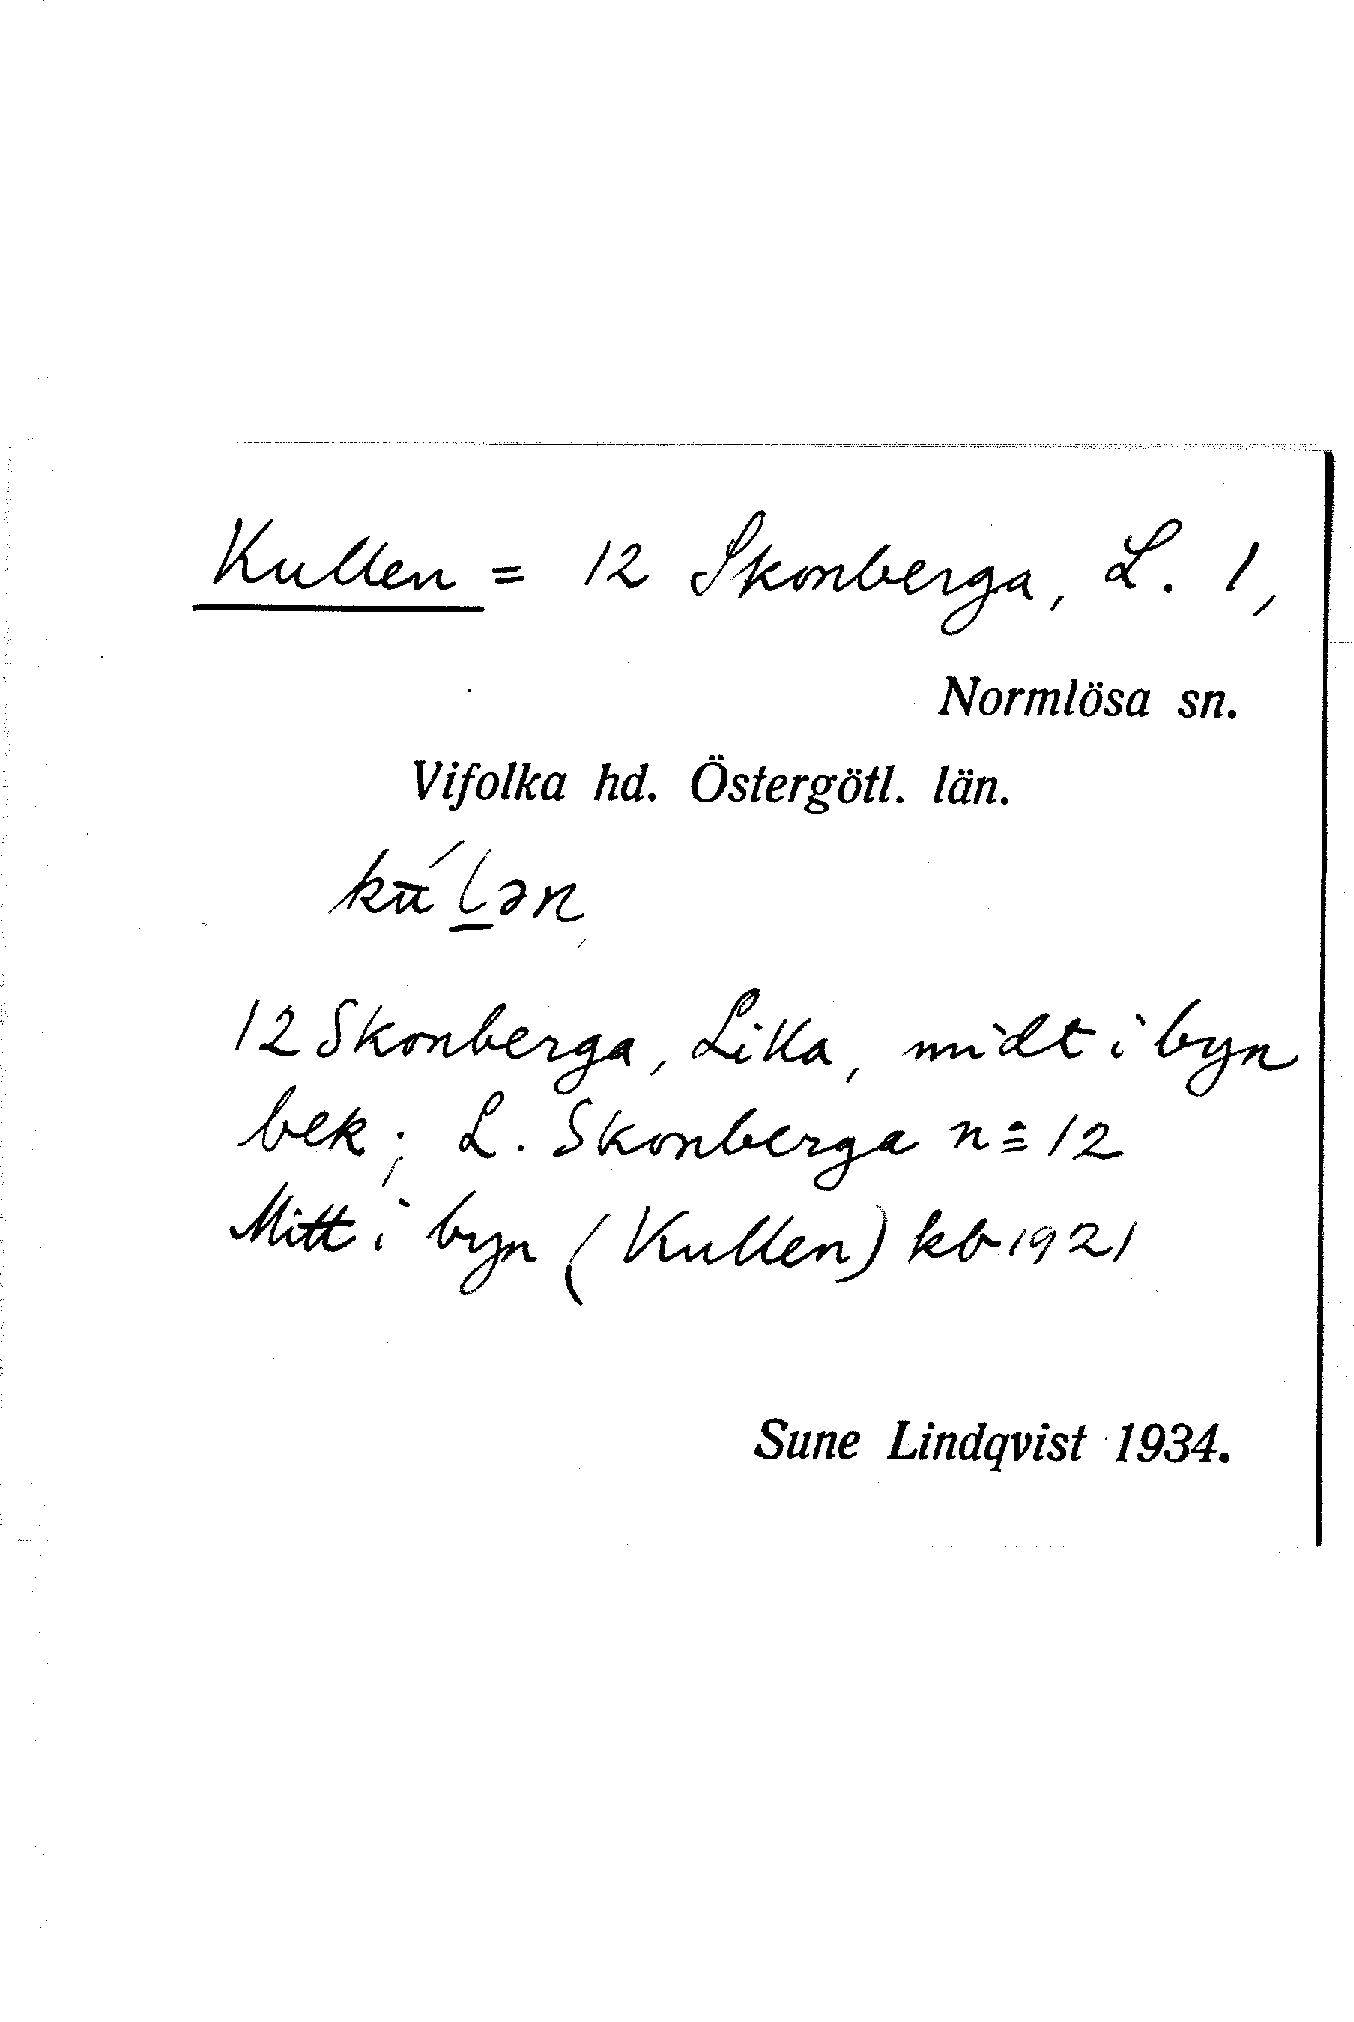 Kullen = 12 Skonberga, L. 1,
Normlösa sn.
Vifolka hd. Östergötl. län.
kū́l̠ən
12 Skonberga, Lilla, midt i byn
bek; L. Skonberga n:= 12
Mitt i byn (Kullen) kb 1921
Sune Lindqvist 1934.